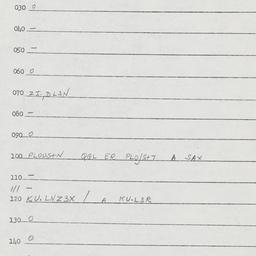 030 0
040 —
050 —
060 0
070 ZI, DL3N
080 —
090 0
100 PLOUS+N QGL ER PLO/S+7 A SAX
110 —
111 —
120 KU.LNZ3X / A KU.L3R
130 0
140 0